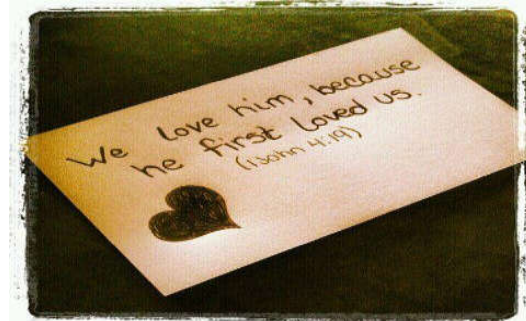 We love him, because
he first loved us.
(1John 4:19)